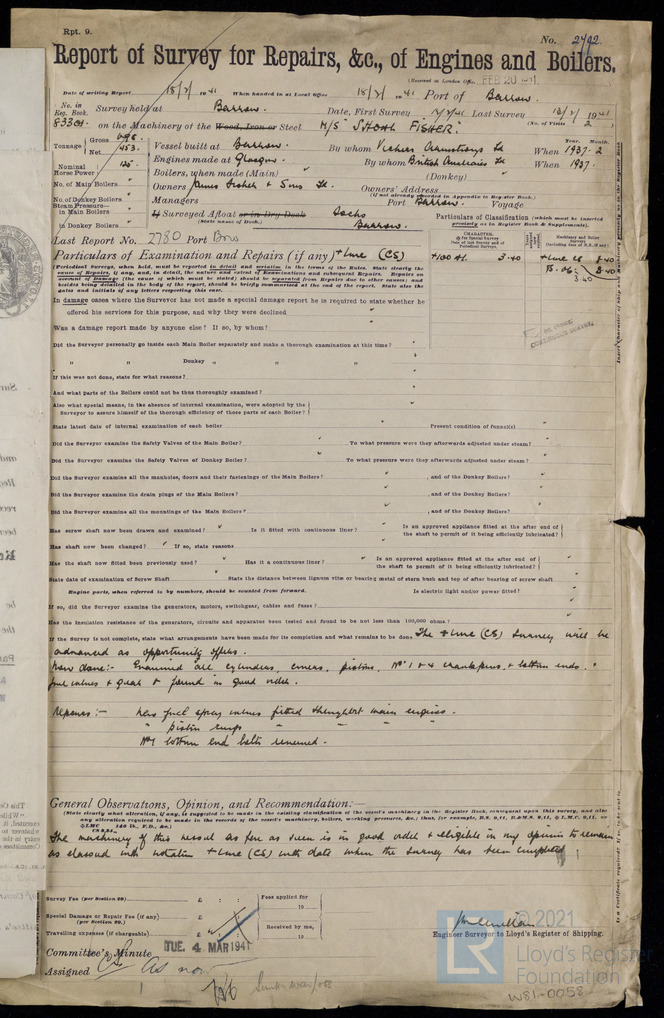 Rpt. 9.
No. 2792.
Report of Survey for Repairs, &c., of Engines and Boilers.
(Received in London Office FEB 20 1941)
Date of writing Report 18/2/1941 When handed in at Local Office 18/2/1941 Port of Barrow.
No. in Reg. Book. Survey held at Barrow. Date, First Survey Last Survey 1941
83301 on the Machinery of the Wood, Iron or Steel M/S "SHOAL FISHER". (No. of Visits 2)
Tonnage Gross 698 Net 453. Vessel built at Barrow. By whom Vickers Armstrongs Ld When 1937. 2 Year. Month.
Nominal Horse Power 125 Engines made at Glasgow. By whom British Auxiliaries Ld When 1937.
No. of Main Boilers Boilers, when made (Main) (Donkey)
No. of Donkey Boilers Owners James Fisher & Sons Ld. Owners' Address
(If not already recorded in Appendix to Register Book.)
Steam Pressure— in Main Boilers Managers Port Barrow. Voyage
in Donkey Boilers If Surveyed Afloat or in Dry Dock Docks Barrow.
(State name of Dock.)
Particulars of Classification (which must be inserted precisely as in Register Book & Supplements).
Last Report No. 2780 Port Bow
Particulars of Examination and Repairs (if any) + LMC (CS)
+100 A1. 3.40 + LMC CS 8.40
In damage cases where the Surveyor has not made a special damage report he is required to state whether he
offered his services for this purpose, and why they were declined
Was a damage report made by anyone else? If so, by whom?
Did the Surveyor personally go inside each Main Boiler separately and make a thorough examination at this time?
„ „ Donkey „ „ „
If this was not done, state for what reasons?
And what parts of the Boilers could not be thus thoroughly examined?
Also what special means, in the absence of internal examination, were adopted by the
Surveyor to assure himself of the thorough efficiency of those parts of each Boiler?
State latest date of internal examination of each boiler Present condition of funnel(s)
Did the Surveyor examine the Safety Valves of the Main Boiler? To what pressure were they afterwards adjusted under steam?
Did the Surveyor examine the Safety Valves of Donkey Boiler? To what pressure were they afterwards adjusted under steam?
Did the Surveyor examine all the manholes, doors and their fastenings of the Main Boilers? , and of the Donkey Boilers?
Did the Surveyor examine the drain plugs of the Main Boilers? , and of the Donkey Boilers?
Did the Surveyor examine all the mountings of the Main Boilers? , and of the Donkey Boilers?
Has screw shaft now been drawn and examined? Is it fitted with continuous liner? Is an approved appliance fitted at the after end of the shaft to permit of it being efficiently lubricated?
Has shaft now been changed? If so, state reasons
Has the shaft now fitted been previously used? Has it a continuous liner? Is an approved appliance fitted at the after end of the shaft to permit of it being efficiently lubricated?
State date of examination of Screw Shaft State the distance between lignum vitæ or bearing metal of stern bush and top of after bearing of screw shaft
Engine parts, when referred to by numbers, should be counted from forward. Is electric light and/or power fitted?
If so, did the Surveyor examine the generators, motors, switchgear, cables and fuses?
Has the insulation resistance of the generators, circuits and apparatus been tested and found to be not less than 100,000 ohms?
If the Survey is not complete, state what arrangements have been made for its completion and what remains to be done The + LMC (CS) Survey will be
advanced as opportunity offers.
Now done:- Examined all cylinders, covers, pistons, Nos 1 & 4 crankpins & bottom ends.
fuel valves & gear & found in good order.
Repairs:- New fuel spray valves fitted throughout main engines.
" piston rings " " "
No 1 bottom end bolts renewed.
General Observations, Opinion, and Recommendation:—
The machinery of this vessel as far as seen is in good order & eligible in my opinion to remain
as classed with notation + LMC (CS) with date when the survey has been completed
Survey Fee (per Section 29) £ : : Fees applied for
19
Special Damage or Repair Fee (if any) (per Section 29.) £ : :
Received by me,
Travelling expenses (if chargeable) £ : : 19
Engineer Surveyor to Lloyd's Register of Shipping.
Committee's Minute TUE. 4 MAR 1941
Assigned As now
© 2021
Lloyd's Register
Foundation
W81-0058